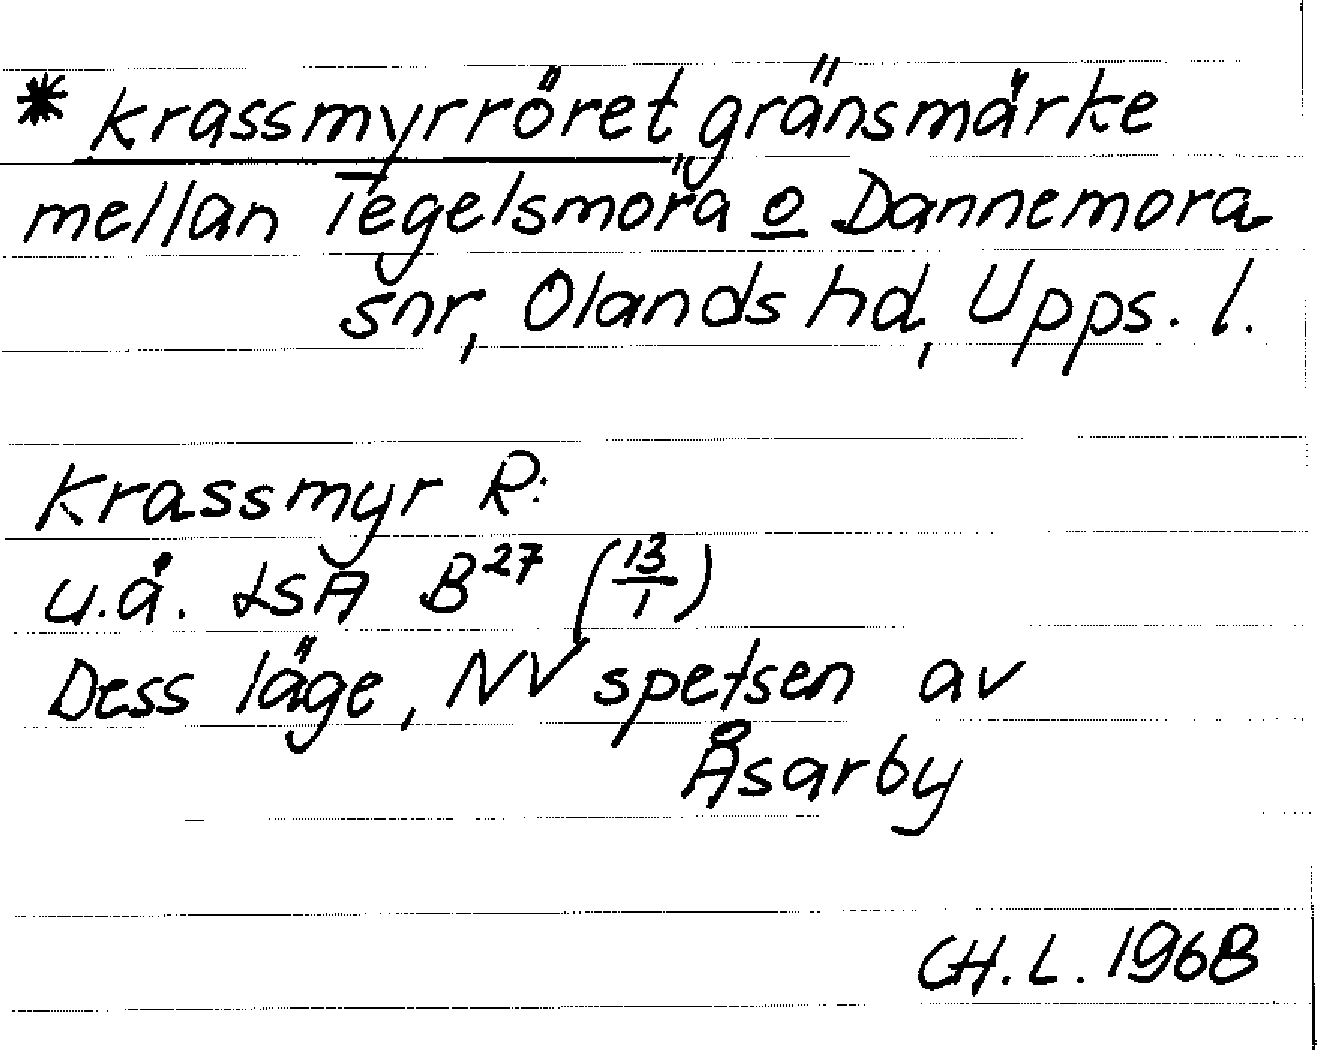 * Krassmyrröret gränsmärke
mellan Tegelsmora o Dannemora
snr, Olands hd, Upps. l.
Krassmyr R:
u.å. LSA B27 (13/1)
Dess läge, NV spetsen av
Åsarby
CH. L. 1968